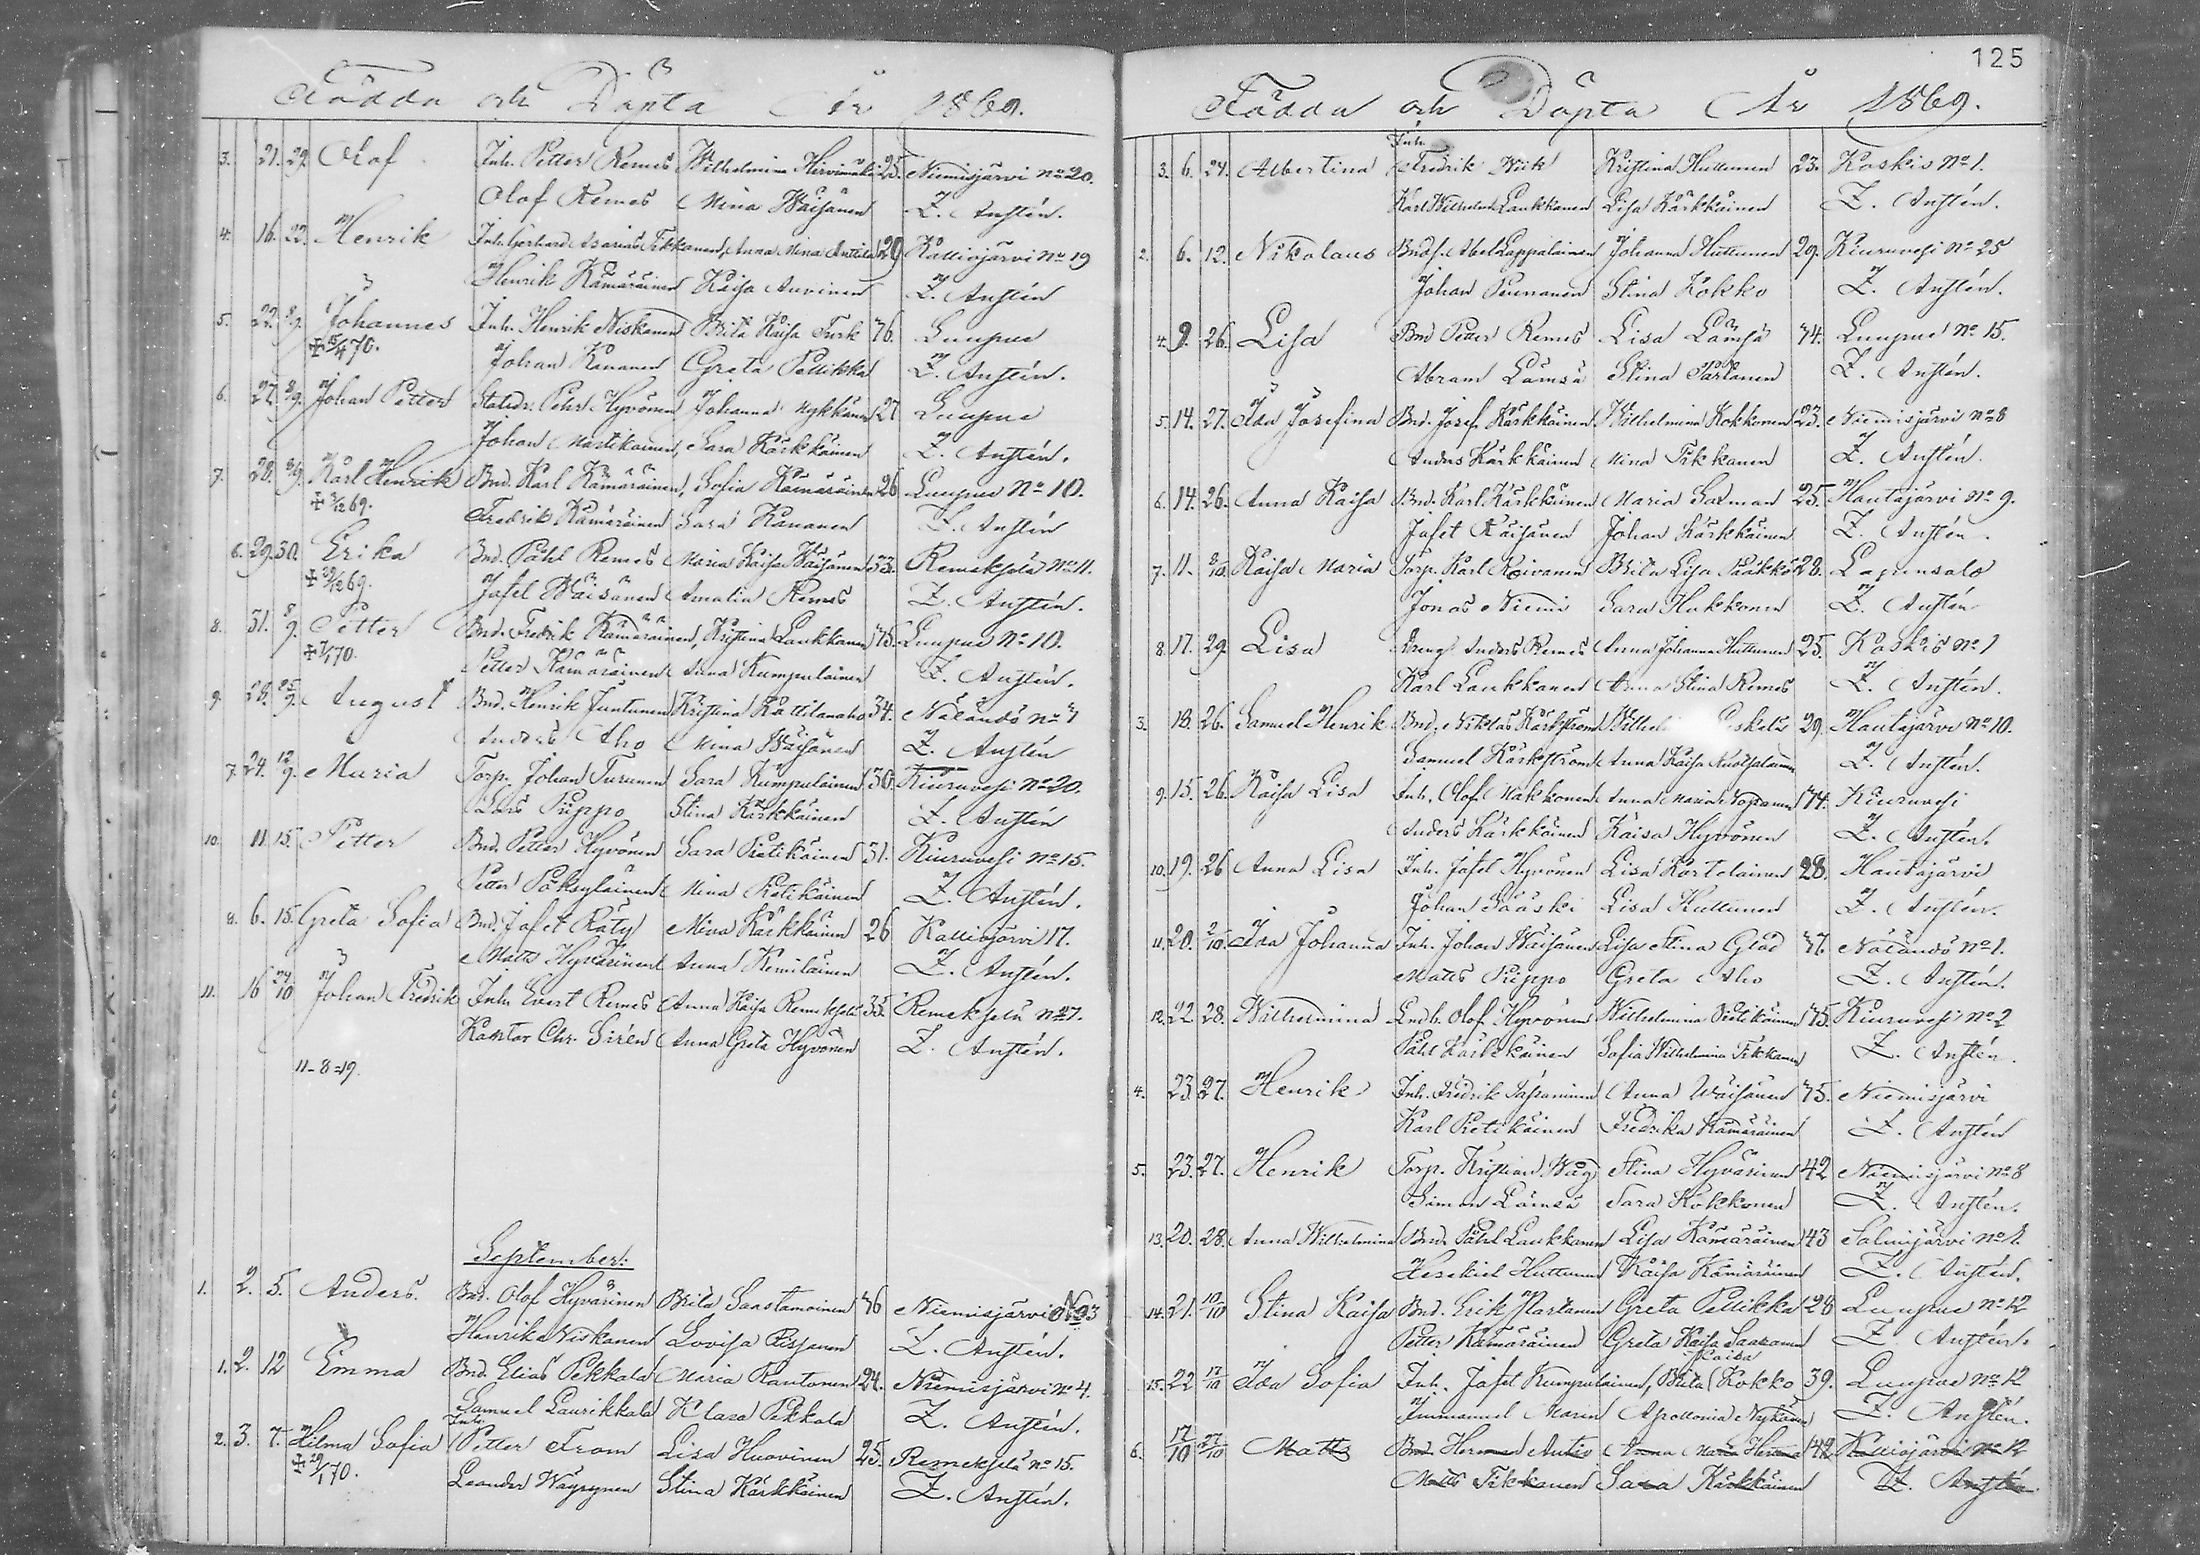 Födda och Döpta År 1869.
3. 21. 29. Olof Inh. Petter Remes Wilhelmina Hirvimäki 25. Niemisjärvi No 20.
Olof Remes Mina Wäisänen Z. Anstén.
4. 16. 22. Henrik Inh. Gerhard Asarias Tikkanen, Anna Mina Anttila 29 Kalliojärvi No 19
Henrik Kämäräinen Kaisa Auvinen Z. Anstén
5. 22. 29. Johannes Inh. Henrik Niskanen Brita Kaisa Turk 76. Luupue
Johan Kananen Greta Pellikka Z. Anstén.
6. 27. 29. Johan Petter Statdr. Pehr Hyvönen Johanna Nykkänen 27 Luupue
Johan Martikainen, Sara Kärkkäinen Z. Anstén.
7. 28. 29. Karl Henrik Bnd. Karl Kämäräinen, Sofia Kämäräinen 26 Luupue No 10.
Fredrik Kämäräinen Sara Kananen Z. Anstén
6. 29. 30. Erika Bnd. Påhl Remes Maria Kaisa Wäisänen 33. Remeskylä No 11.
Jafet Wäisänen Amalia Remes Z. Anstén.
8. 31. Petter Bnd. Fredrik Kämäräinen, Kristina Laukkanen 75. Luupue No 10.
Petter Kämäräinen Anna Kumpulainen Z. Anstén.
9. 28. August Bnd. Henrik Juntunen Kristina Kattilanaho 34. Näländö No 7
Anders Aho Mina Wäisänen Z. Anstén
7. 24. 12/9. Maria Torp. Johan Turunen Sara Kumpulainen 30. Kiuruvesi No 20.
Lars Piippo Stina Kärkkäinen Z. Anstén
10. 11. 15. Petter Bnd. Petter Hyvönen Sara Pietikäinen 31. Kiuruvesi No 15.
Petter Mina Pietikäinen Z. Anstén.
8. 6. 15. Greta Sofia Bnd. Jafet Räty Mina Kärkkäinen 26 Kalliojärvi 17.
Matts Hyvärinen Anna Kemiläinen Z. Anstén.
11. 16 24/10 Johan Fredrik Inh. Evert Remes Anna Kaisa Remeskylä 35. Remeskylä No 7.
Kantor Chr. Sirén Anna Greta Hyvönen Z. Anstén.
11-8=19.
September:
1. 2. 5. Anders. Bnd. Olof Hyvärinen Brita Saastamoinen 76 Niemisjärvi No 23
Henrik Niskanen Lovisa Z. Anstén.
1. 2. 12 Emma Bnd. Elias Pekkala Maria Rautonen 24. Niemisjärvi No 4.
Samuel Laurikkala Klara Pekkala Z. Anstén.
Inh.
2. 3. 7. Hilma Sofia Petter From Lisa Huovinen 25. Remeskylä No 15.
Leander Wäyrynen Stina Kärkkäinen Z. Anstén.
125
Födda och Döpta År 1869.
Inh.
3. 6. 24. Albertina Fredrik Wik Kristina Huttunen 23. Koskis No 1.
Karl Wilhelm Laukkanen Lisa Kärkkäinen Z. Anstén.
2. 6. 12. Nikolaus Bnds. Abel Lappalainen Johanna Huttunen 29. Kiuruvesi No 25
Johan Stina Kokko Z. Anstén.
4. 9. 26. Lisa Bnd Petter Remes Lisa Lämsä 74. Luupue No 15.
Abram Lämsä Stina Partanen Z. Anstén.
5. 14. 27. Ida Josefina Bnd. Josef Kärkkäinen Wilhelmina Kokkonen 23. Niemisjärvi No 8
Anders Kärkkäinen Mina Tikkanen Z. Anstén.
6. 14. 26. Anna Kaisa Bnd. Karl Kärkkäinen Maria Saxman 25. Hautajärvi No 9.
Jafet Räisänen Johan Kärkkäinen Z. Anstén.
7. 11. Kaisa Maria Torp. Karl Koivanen Brita Lisa Pääkkö 28. Lapinsalo
Jonas Niemi Sara Hukkonen Z. Anstén
8. 17. 29. Lisa Dreng Anders Remes Anna Johanna Huttunen 25. Koskis No 1
Karl Laukkanen Anna Stina Remes Z. Anstén.
3. 18. 26. Samuel Henrik Bnd. Niklas Karkström 29. Hautajärvi No 10.
Samuel Karkström Anna Kaisa Z. Anstén.
9. 15. 26. Kaisa Lisa Inh. Olof Makkonen Anna Maria 74. Kiuruvesi
Anders Kärkkäinen Kaisa Hyvönen Z. Anstén.
10. 19. 26 Anna Lisa Inh. Jafet Hyvönen Lisa Kortelainen 28. Hautajärvi
Johan Sääski Lisa Huttunen Z. Anstén.
11. 20. 2/10. Ida Johanna Inh. Johan Wäisänen Lisa Stina Glad 37. Näländö No 1.
Matts Piippo Greta Aho Z. Anstén.
12. 22. 28. Wilhelmina Lndb. Olof Hyvönen Wilhelmina Pietikäinen 75. Kiuruvesi No 2
Påhl Kärkkäinen Sofia Wilhelmina Tikkanen Z. Anstén.
4. 23. 27. Henrik Inh. Fredrik Anna Wäisänen 75. Niemisjärvi
Karl Pietikäinen Fredrika Kämäräinen Z. Anstén
5. 23. 27. Henrik Torp. Kristian Wäg Stina Hyvärinen 42 Niemisjärvi No 8
Simon Lämsä Sara Kokkonen Z. Anstén.
13. 20. 28. Anna Wilhelmina Bnd. Påhl Laukkanen Lisa Kämäräinen 43 Salmijärvi No 1.
Hesekiel Huttunen Kaisa Kämäräinen Z. Anstén.
14. 21. 10/10 Stina Kaisa Bnd. Erik Partanen Greta Pellikka 28 Luupue No 12
Petter Kämäräinen Greta Kaisa Z. Anstén.
Kaisa
15. 22 17/10 Ida Sofia Inh. Jafet Kumpulainen, Brita Kokko 39. Luupue No 12
Immanuel Marin Apollonia Nykänen Z. Anstén.
6. 17/10 27/10 Matts Bnd. Herman Autio Anna Maria 42 Kalliojärvi No 12
Matts Tikkanen Sara Kärkkäinen Z. Anstén.